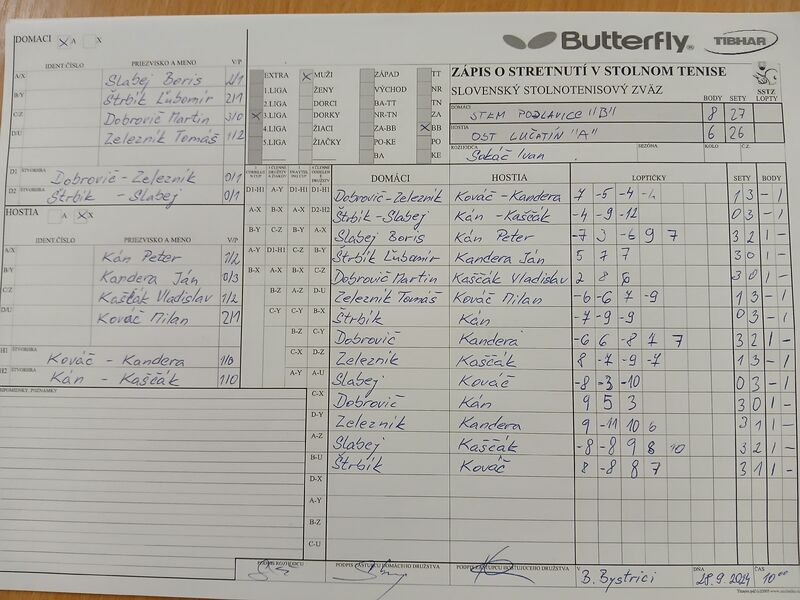 DOMACI X A X
IDENT.ČÍSLO PRIEZVISKO A MENO V/P
A/X Slabej Boris 2/1
B/Y Štrbík Ľubomír 2/1
C/Z Dobrovič Martin 3/0
D/U Železník Tomáš 1/2
D1 ŠTVORHRA Dobrovič - Železník 0/1
D2 Štrbík - Slabej 0/1
HOSTIA A X X
IDENT.ČÍSLO PRIEZVISKO A MENO V/P
A/X Kán Peter 1/2
B/Y Kandera Ján 0/3
C/Z Kaščák Vladislav 1/2
D/U Kováč Milan 2/1
H1 ŠTVORHRA Kováč - Kandera 1/0
H2 ŠTVORHRA Kán - Kaščák 1/0
PRIPOMIENKY, POZNÁMKY
Butterfly TIBHAR
EXTRA X MUŽI ZÁPAD TT
1.LIGA ŽENY VÝCHOD NR
2.LIGA DORCI BA-TT TN
X 3.LIGA DORKY NR-TN ZA
4.LIGA ŽIACI ZA-BB X BB
5.LIGA ŽIAČKY PO-KE PO
BA KE
ZÁPIS O STRETNUTÍ V STOLNOM TENISE
SLOVENSKÝ STOLNOTENISOVÝ ZVÄZ SSTZ
BODY SETY LOPTY
DOMÁCI STKM PODLAVICE "B" 8 27
HOSTIA OST LUČATÍN "A" 6 26
ROZHODCA Sokáč Ivan SEZÓNA KOLO Č.Z.
DOMÁCI HOSTIA LOPTIČKY SETY BODY
D1-H1 A-Y D1-H1 D1-H1 Dobrovič-Železník Kováč-Kandera 7 -5 -4 1 3 - 1
A-X B-X D2-H2 Štrbík-Slabej Kán-Kaščák -4 -9 -12 0 3 - 1
B-Y C-Z B-Y A-X Slabej Boris Kán Peter -7 3 -6 9 7 3 2 1 -
A-Y D1-H1 C-Z B-Y Štrbík Ľubomír Kandera Ján 5 7 7 3 0 1 -
B-X A-X B-X C-Z Dobrovič Martin Kaščák Vladislav 2 8 6 3 0 1 -
B-Z A-Z D-U Železník Tomáš Kováč Milan -6 -6 7 -9 1 3 - 1
C-Y C-Y B-X Štrbík Kán -7 -9 -9 0 3 - 1
B-Z C-Y Dobrovič Kandera -6 6 -8 7 7 3 2 1 -
C-X D-Z Železník Kaščák 8 -7 -9 -7 1 3 - 1
A-Y A-U Slabej Kováč -8 -3 -10 0 3 - 1
C-X Dobrovič Kán 9 5 3 3 0 1 -
D-Y Železník Kandera 9 -11 10 6 3 1 1 -
A-Z Slabej Kaščák -8 -8 9 8 10 3 2 1 -
B-U Štrbík Kováč 8 -8 8 7 3 1 1 -
D-X
A-Y
B-Z
C-U
PODPIS ROZHODCU PODPIS ZÁSTUPCU DOMÁCEHO DRUŽSTVA PODPIS ZÁSTUPCU HOSŤUJÚCEHO DRUŽSTVA V B. Bystrici DŇA 28.9.2024 ČAS 10:00